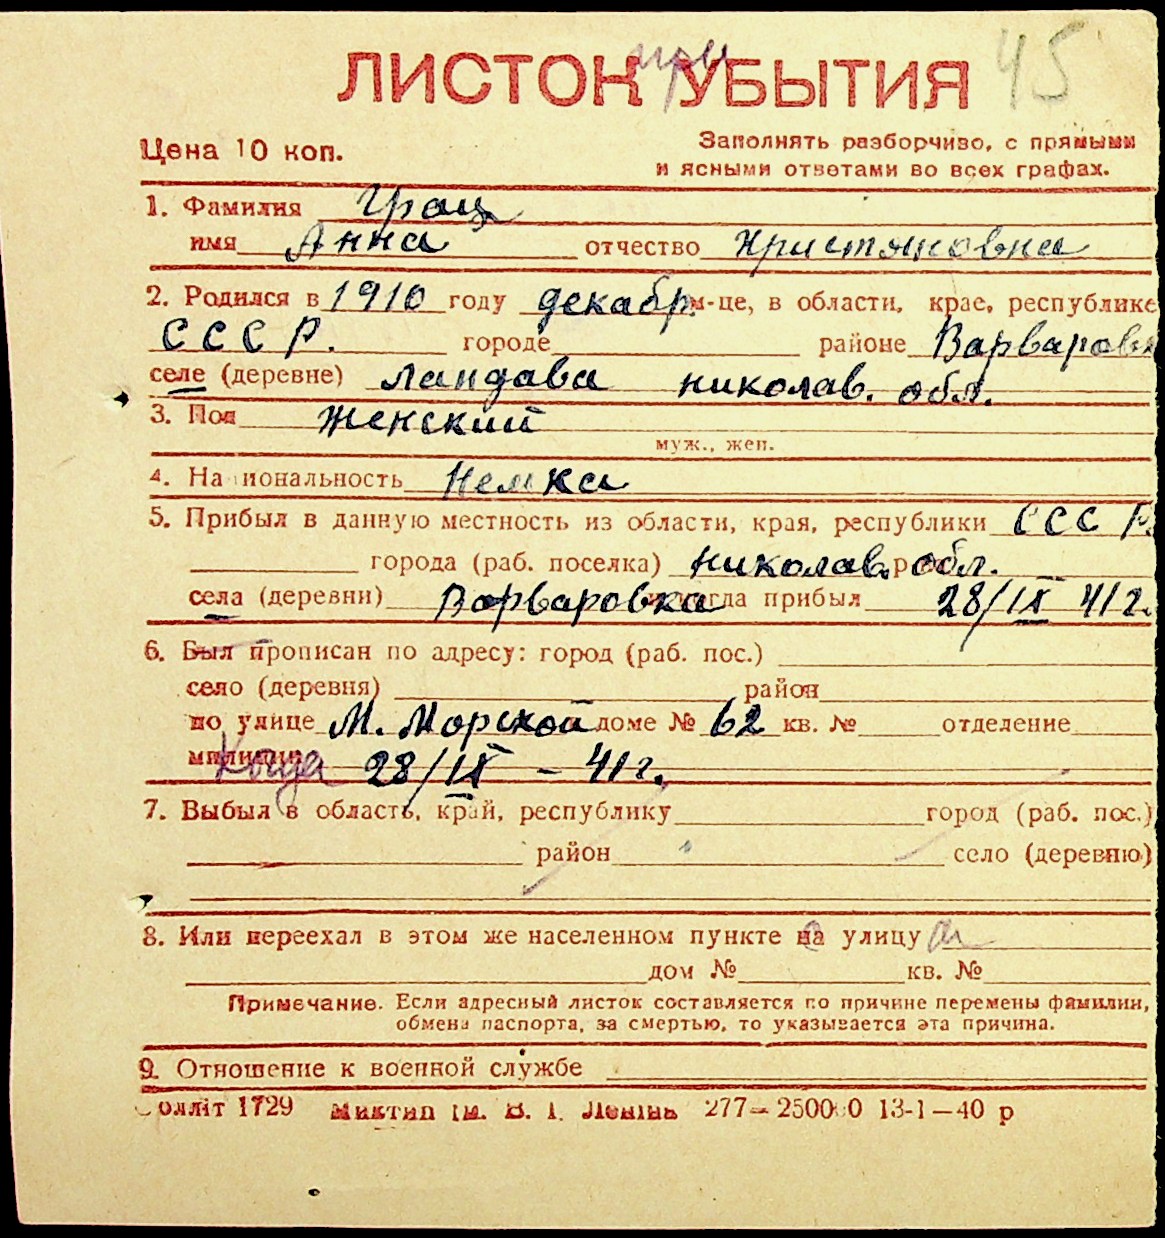 ЛИСТОК при УБЫТИЯ 45
Цена 10 коп.
Заполнять разборчиво, с прямыми
и ясными ответами во всех графах.
1. Фамилия Грац
имя Анна отчество Християновна
2. Родился в 1910 году декабр. м-це, в области, крае, республике
СССР. городе районе Варваровк
селе (деревне) Ландава николав. обл.
3. Пол Женский
муж., жен.
4. Национальность Немка
5. Прибыл в данную местность из области, края, республики СССР.
города (раб. поселка) николав. обл.
села (деревни) Варваровка и когда прибыл 28/IX 41г.
6. Был прописан по адресу: город (раб. пос.)
село (деревня) район
по улице М. Морской доме № 62 кв. № отделение
милиции Когда 28/IX – 41г.
7. Выбыл в область, край, республику город (раб. пос.)
район село (деревню)
8. Или переехал в этом же населенном пункте на улицу
дом № кв. №
Примечание. Если адресный листок составляется по причине перемены фамилии,
обмена паспорта, за смертью, то указывается эта причина.
9. Отношение к военной службе
оллiт 1729 277—250000 13-1—40 р